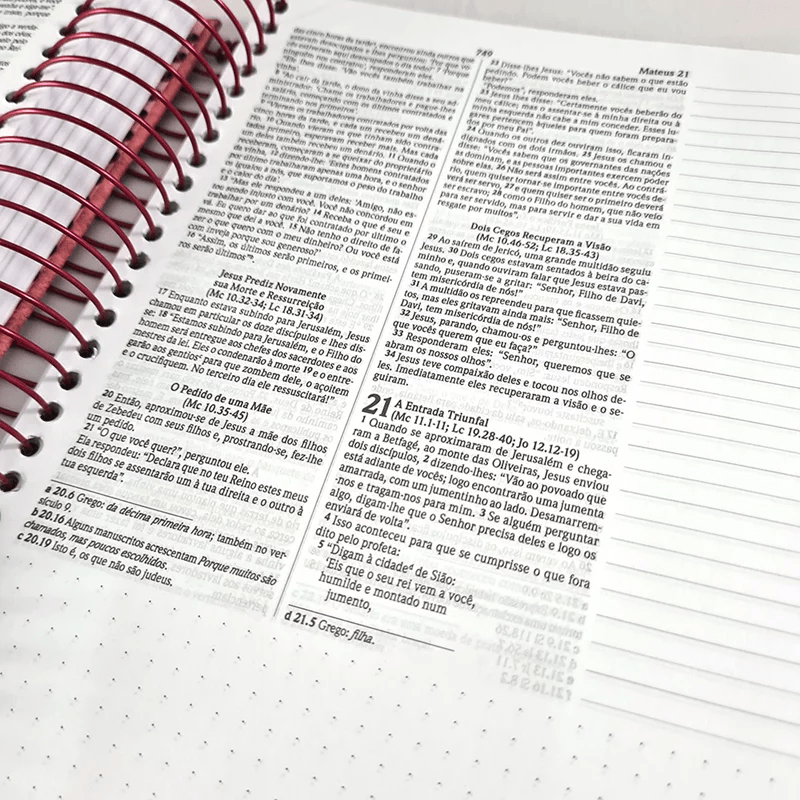 740
Mateus 21
da cinco horas da tarde, encontrou ainda outros que
estavam desocupados e lhes perguntou: 'Por que
7 'Porque
ninguém nos contratou', responderam eles.
"Ele lhes disse: 'Vão vocês também trabalhar na
8 "Ao cair da tarde, o dono da vinha disse a seu ad-
ministrador: 'Chame os trabalhadores e pague-lhes
o salário, começando com os últimos contratados e
terminando nos primeiros'.
9 "Vieram os trabalhadores contratados por volta das
e cada um recebeu um dená-
rio. 10 Quando vieram os que tinham sido contra-
tados primeiro, esperavam receber mais. Mas cada
um deles também recebeu um denário. 11 Quando o
receberam, começaram a se queixar do proprietário
da vinha, 12 dizendo-lhe: 'Estes homens contratados
por último trabalharam apenas uma hora, e o senhor
os igualou a nós, que suportamos o peso do trabalho
e o calor do dia'.
13 "Mas ele respondeu a um deles: 'Amigo, não es-
tou sendo injusto com você. Você não concordou em
trabalhar por um denário? 14 Receba o que é seu e
vá. Eu quero dar ao que foi contratado por último o
mesmo que dei a você. 15 Não tenho o direito de fa-
zer o que quero com o meu dinheiro? Ou você está
com inveja porque sou generoso?'
16 "Assim, os últimos serão primeiros, e os primei-
ros serão últimos"ᵇ.
Jesus Prediz Novamente
sua Morte e Ressurreição
(Mc 10.32-34; Lc 18.31-34)
17 Enquanto estava subindo para Jerusalém, Jesus
chamou em particular os doze discípulos e lhes dis-
se: 18 "Estamos subindo para Jerusalém, e o Filho do
homem será entregue aos chefes dos sacerdotes e aos
mestres da lei. Eles o condenarão à morte 19 e o entre-
garão aos gentiosᶜ para que zombem dele, o açoitem
e o crucifiquem. No terceiro dia ele ressuscitará!"
O Pedido de uma Mãe
(Mc 10.35-45)
20 Então, aproximou-se de Jesus a mãe dos filhos
de Zebedeu com seus filhos e, prostrando-se, fez-lhe
um pedido.
21 "O que você quer?", perguntou ele.
Ela respondeu: "Declara que no teu Reino estes meus
dois filhos se assentarão um à tua direita e o outro à
tua esquerda".
a 20.6 Grego: da décima primeira hora; também no ver-
sículo 9.
b 20.16 Alguns manuscritos acrescentam Porque muitos são
chamados, mas poucos escolhidos.
c 20.19 Isto é, os que não são judeus.
22 Disse-lhes Jesus: "Vocês não sabem o que estão
pedindo. Podem vocês beber o cálice que eu vou
beber?"
"Podemos", responderam eles.
23 Jesus lhes disse: "Certamente vocês beberão do
meu cálice; mas o assentar-se à minha direita ou à
minha esquerda não cabe a mim conceder. Esses lu-
gares pertencem àqueles para quem foram prepara-
dos por meu Pai".
24 Quando os outros dez ouviram isso, ficaram in-
dignados com os dois irmãos. 25 Jesus os chamou e
disse: "Vocês sabem que os governantes das nações
as dominam, e as pessoas importantes exercem poder
sobre elas. 26 Não será assim entre vocês. Ao contrá-
rio, quem quiser tornar-se importante entre vocês de-
verá ser servo, 27 e quem quiser ser o primeiro deverá
ser escravo; 28 como o Filho do homem, que não veio
para ser servido, mas para servir e dar a sua vida em
resgate por muitos".
Dois Cegos Recuperam a Visão
(Mc 10.46-52; Lc 18.35-43)
29 Ao saírem de Jericó, uma grande multidão seguiu
Jesus. 30 Dois cegos estavam sentados à beira do ca-
minho e, quando ouviram falar que Jesus estava pas-
sando, puseram-se a gritar: "Senhor, Filho de Davi,
tem misericórdia de nós!"
31 A multidão os repreendeu para que ficassem quie-
tos, mas eles gritavam ainda mais: "Senhor, Filho de
Davi, tem misericórdia de nós!"
32 Jesus, parando, chamou-os e perguntou-lhes: "O
que vocês querem que eu faça?"
33 Responderam eles: "Senhor, queremos que se
abram os nossos olhos".
34 Jesus teve compaixão deles e tocou nos olhos de-
les. Imediatamente eles recuperaram a visão e o se-
guiram.
21 A Entrada Triunfal
(Mc 11.1-11; Lc 19.28-40; Jo 12.12-19)
1 Quando se aproximaram de Jerusalém e chega-
ram a Betfagé, ao monte das Oliveiras, Jesus enviou
dois discípulos, 2 dizendo-lhes: "Vão ao povoado que
está adiante de vocês; logo encontrarão uma jumenta
amarrada, com um jumentinho ao lado. Desamarrem-
-nos e tragam-nos para mim. 3 Se alguém perguntar
algo, digam-lhe que o Senhor precisa deles e logo os
enviará de volta".
4 Isso aconteceu para que se cumprisse o que fora
dito pelo profeta:
5 "Digam à cidadeᵈ de Sião:
'Eis que o seu rei vem a você,
humilde e montado num
jumento,
d 21.5 Grego: filha.